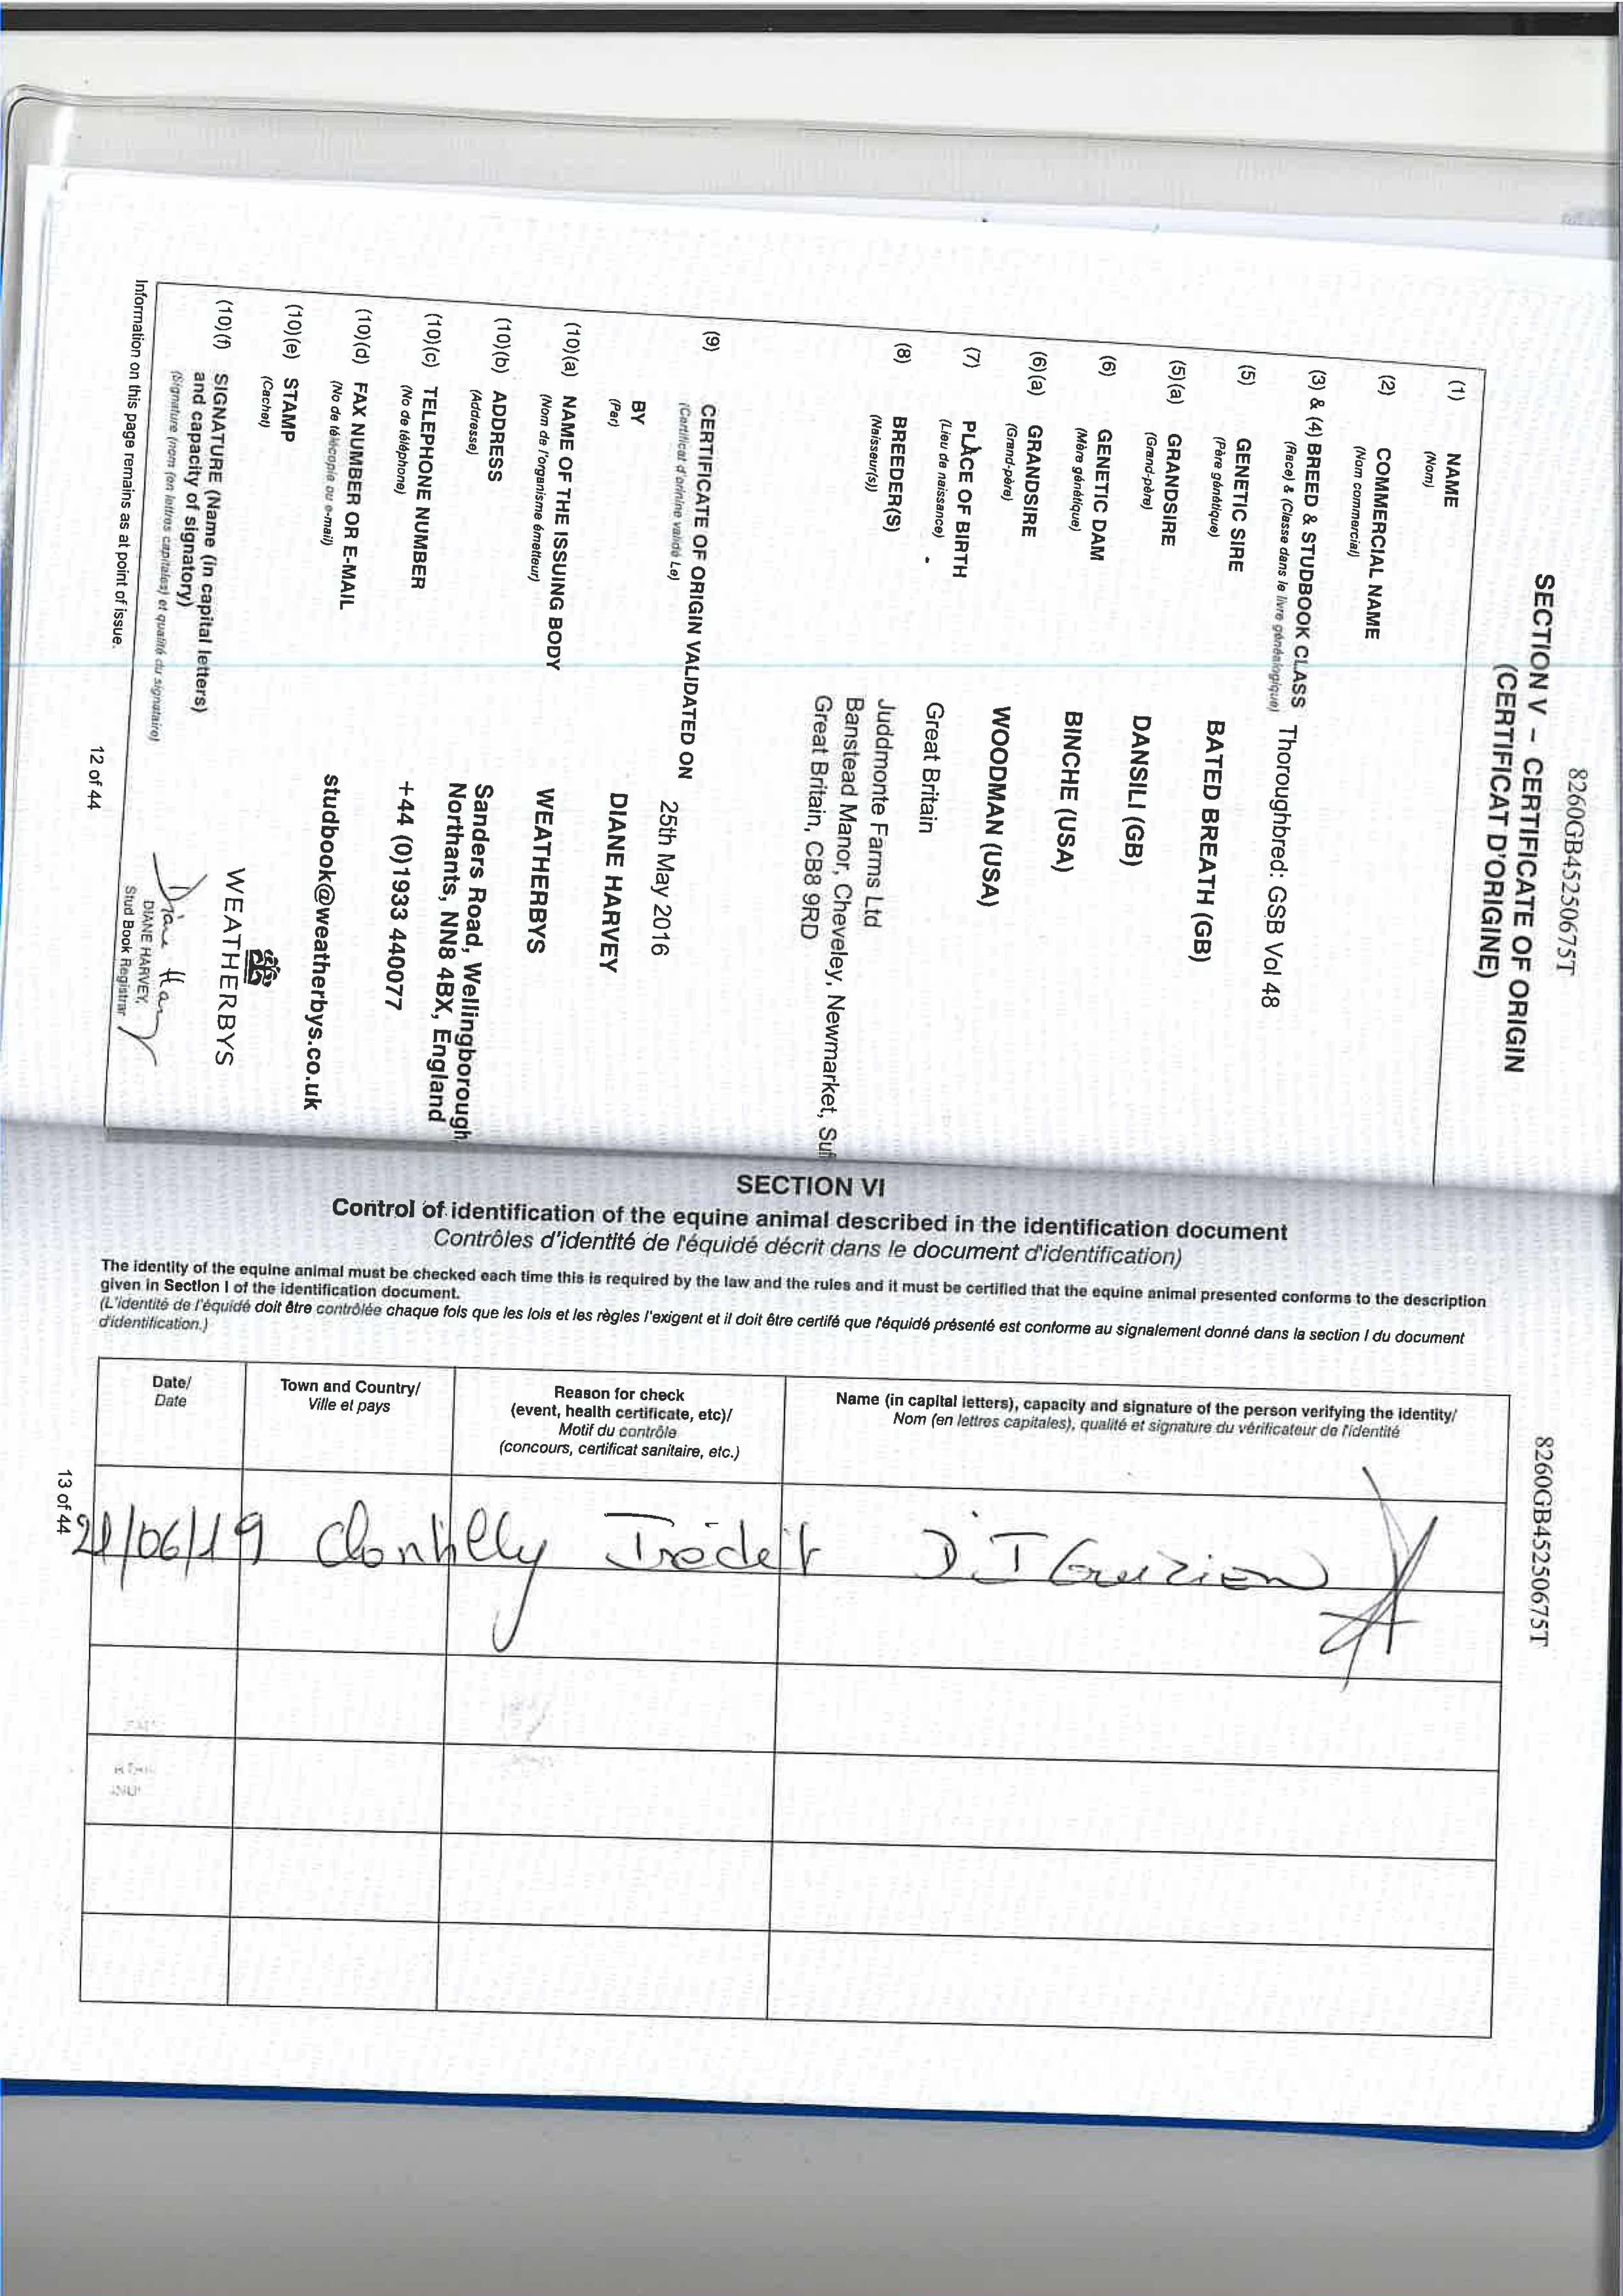 8260GB45250675T
SECTION V – CERTIFICATE OF ORIGIN
(CERTIFICAT D'ORIGINE)
(1) NAME
(Nom)
(2) COMMERCIAL NAME
(Nom commercial)
(3) & (4) BREED & STUDBOOK CLASS Thoroughbred: GSB Vol 48
(Race) & (Classe dans le livre généalogique)
(5) GENETIC SIRE BATED BREATH (GB)
(Père génétique)
(5)(a) GRANDSIRE DANSILI (GB)
(Grand-père)
(6) GENETIC DAM BINCHE (USA)
(Mère génétique)
(6)(a) GRANDSIRE WOODMAN (USA)
(Grand-père)
(7) PLACE OF BIRTH Great Britain
(Lieu de naissance)
(8) BREEDER(S) Juddmonte Farms Ltd
(Naisseur(s)) Banstead Manor, Cheveley, Newmarket, Suf
Great Britain, CB8 9RD
(9) CERTIFICATE OF ORIGIN VALIDATED ON 25th May 2016
(Certificat d'orinine validé Le)
BY DIANE HARVEY
(Par)
(10)(a) NAME OF THE ISSUING BODY WEATHERBYS
(Nom de l'organisme émetteur)
(10)(b) ADDRESS Sanders Road, Wellingborough
(Addresse) Northants, NN8 4BX, England
(10)(c) TELEPHONE NUMBER +44 (0)1933 440077
(No de téléphone)
(10)(d) FAX NUMBER OR E-MAIL studbook@weatherbys.co.uk
(No de télécopie ou e-mail)
(10)(e) STAMP
(Cachet)
WEATHERBYS
(10)(f) SIGNATURE (Name (in capital letters)
and capacity of signatory)
(Signature (nom (en lettres capitales) et qualité du signataire)
Diane Harvey
DIANE HARVEY,
Stud Book Registrar
Information on this page remains as at point of issue.
12 of 44
SECTION VI
Control of identification of the equine animal described in the identification document
Contrôles d'identité de l'équidé décrit dans le document d'identification)
The identity of the equine animal must be checked each time this is required by the law and the rules and it must be certified that the equine animal presented conforms to the description
given in Section I of the identification document.
(L'identité de l'équidé doit être contrôlée chaque fois que les lois et les règles l'exigent et il doit être certifé que l'équidé présenté est conforme au signalement donné dans la section I du document
d'identification.)
Date/
Date
Town and Country/
Ville et pays
Reason for check
(event, health certificate, etc)/
Motif du contrôle
(concours, certificat sanitaire, etc.)
Name (in capital letters), capacity and signature of the person verifying the identity/
Nom (en lettres capitales), qualité et signature du vérificateur de l'identité
21/06/19
8260GB45250675T
13 of 44